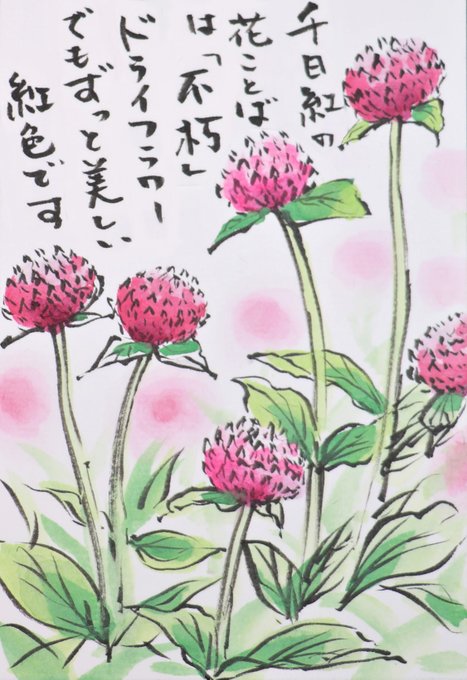 千日紅の
花ことば
は「不朽」
ドライフラワー
でもずっと美しい
紅色です